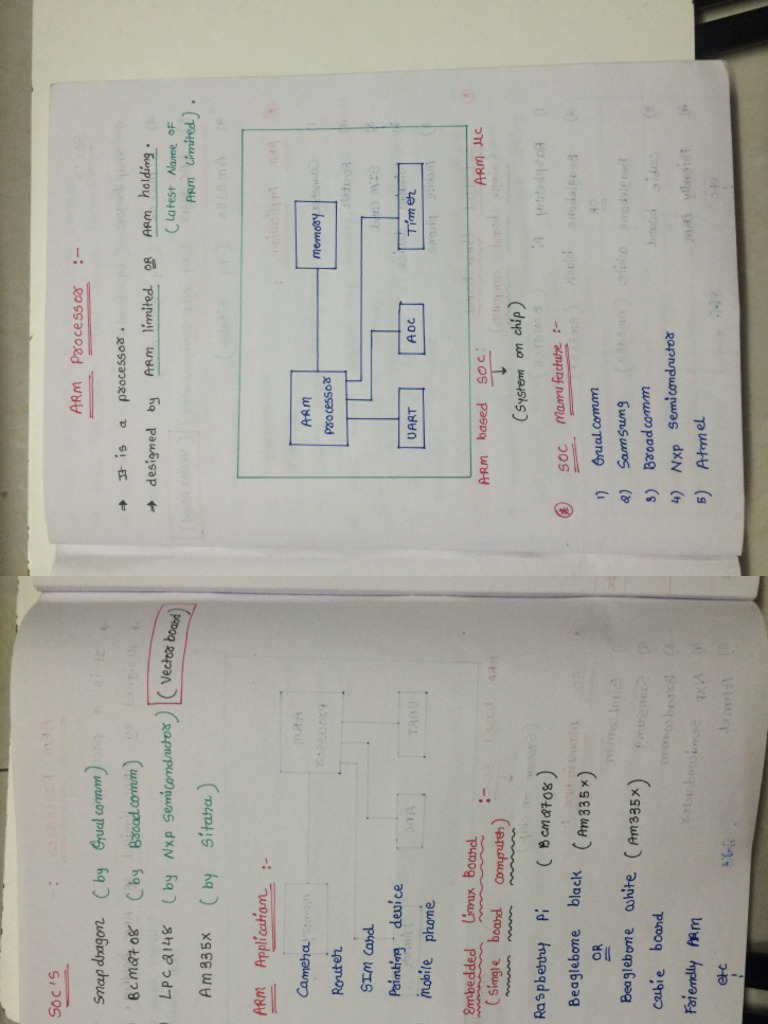 ARM Processor :-
→ It is a processor.
→ designed by ARM limited OR ARM holding.
(Latest Name OF
ARM Limited).
ARM
Processor
memory
UART
ADC
Timer
ARM based SOC:
ARM μc
(System on chip)
* SOC Manufacture :-
1) Qualcomm
2) Samsung
3) Broadcomm
4) Nxp semiconductor
5) Atmel
SOC'S :
Snapdragon (by Qualcomm)
Bcm2708 (by Broadcomm)
LPC2148 (by Nxp semiconductor) (Vector board)
Am335x (by Sitara)
ARM Application :-
Camera
Router
SIM card
Pointing device
mobile phone
Embedded Linux Board
(single board computer) :-
Raspberry Pi (Bcm2708)
Beaglebone black (Am335x)
OR
Beaglebone white (Am335x)
cubie board
Friendly ARM
etc